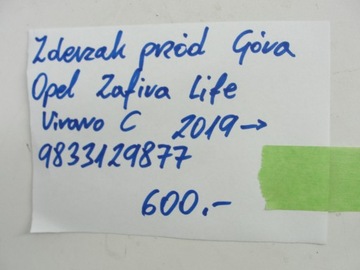 Zderzak przód Góra
Opel Zafira Life
Vivaro C 2019→
9833129877
600.-